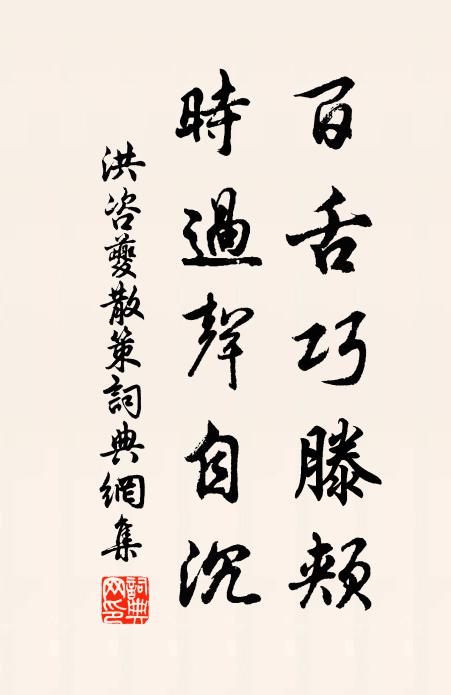 百舌巧滕頰
時過聲自沉
洪咨夔散策詞典網集
詞典網印